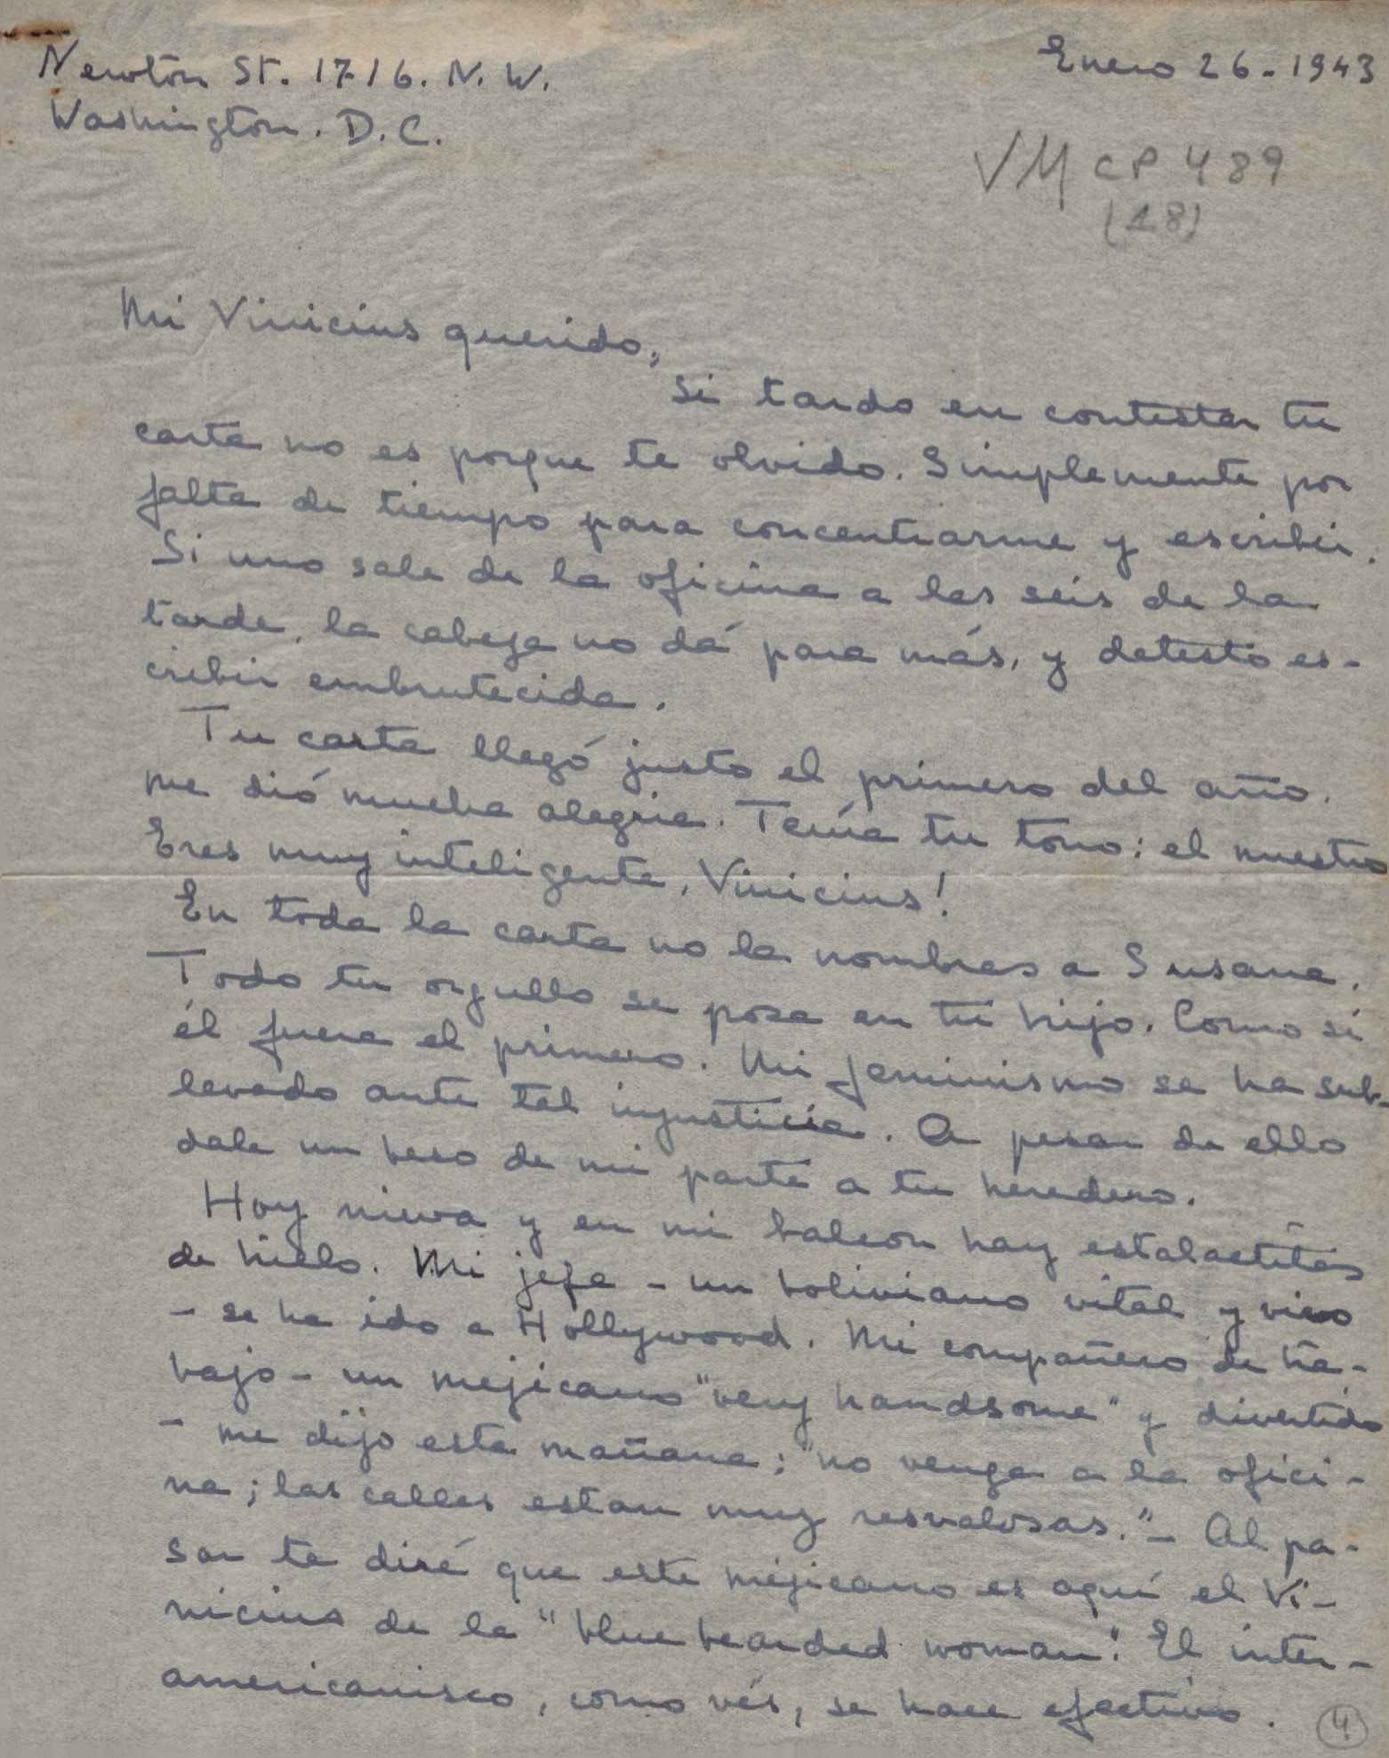 Newton St. 1716. N.W.
Enero 26-1943
Washington. D.C.
VM CP 489
(18)
Mi Vinicius querido,
Si tardo en contestar tu
carta no es porque te olvido. Simplemente por
falta de tiempo para concentrarme y escribir.
Si uno sale de la oficina a las seis de la
tarde, la cabeza no dá para más, y detesto es-
cribir embrutecida.
Tu carta llegó justo el primero del año.
me dió mucha alegria. Tenía tu tono: el nuestro
Eres muy inteligente, Vinicius!
En toda la carta no la nombras a Susana.
Todo tu orgullo se posa en tu hijo. Como si
él fuera el primero. Mi feminismo se ha sub-
levado ante tal injusticia. A pesar de ello
dale un beso de mi parte a tu heredero.
Hoy nieva y en mi balcon hay estalactitas
de hielo. Mi jefe - un boliviano vital y vivo
- se ha ido a Hollywood. Mi compañero de tra-
bajo - un mejicano "very handsome" y divertido
- me dijo esta mañana; "no venga a la ofici-
na; las calles estan muy resvalosas." - Al pa-
sar te diré que este mejicano es aquí el Vi-
nicius de la "blue bearded woman". El inter-
americanisco, como vés, se hace efectivo.
4